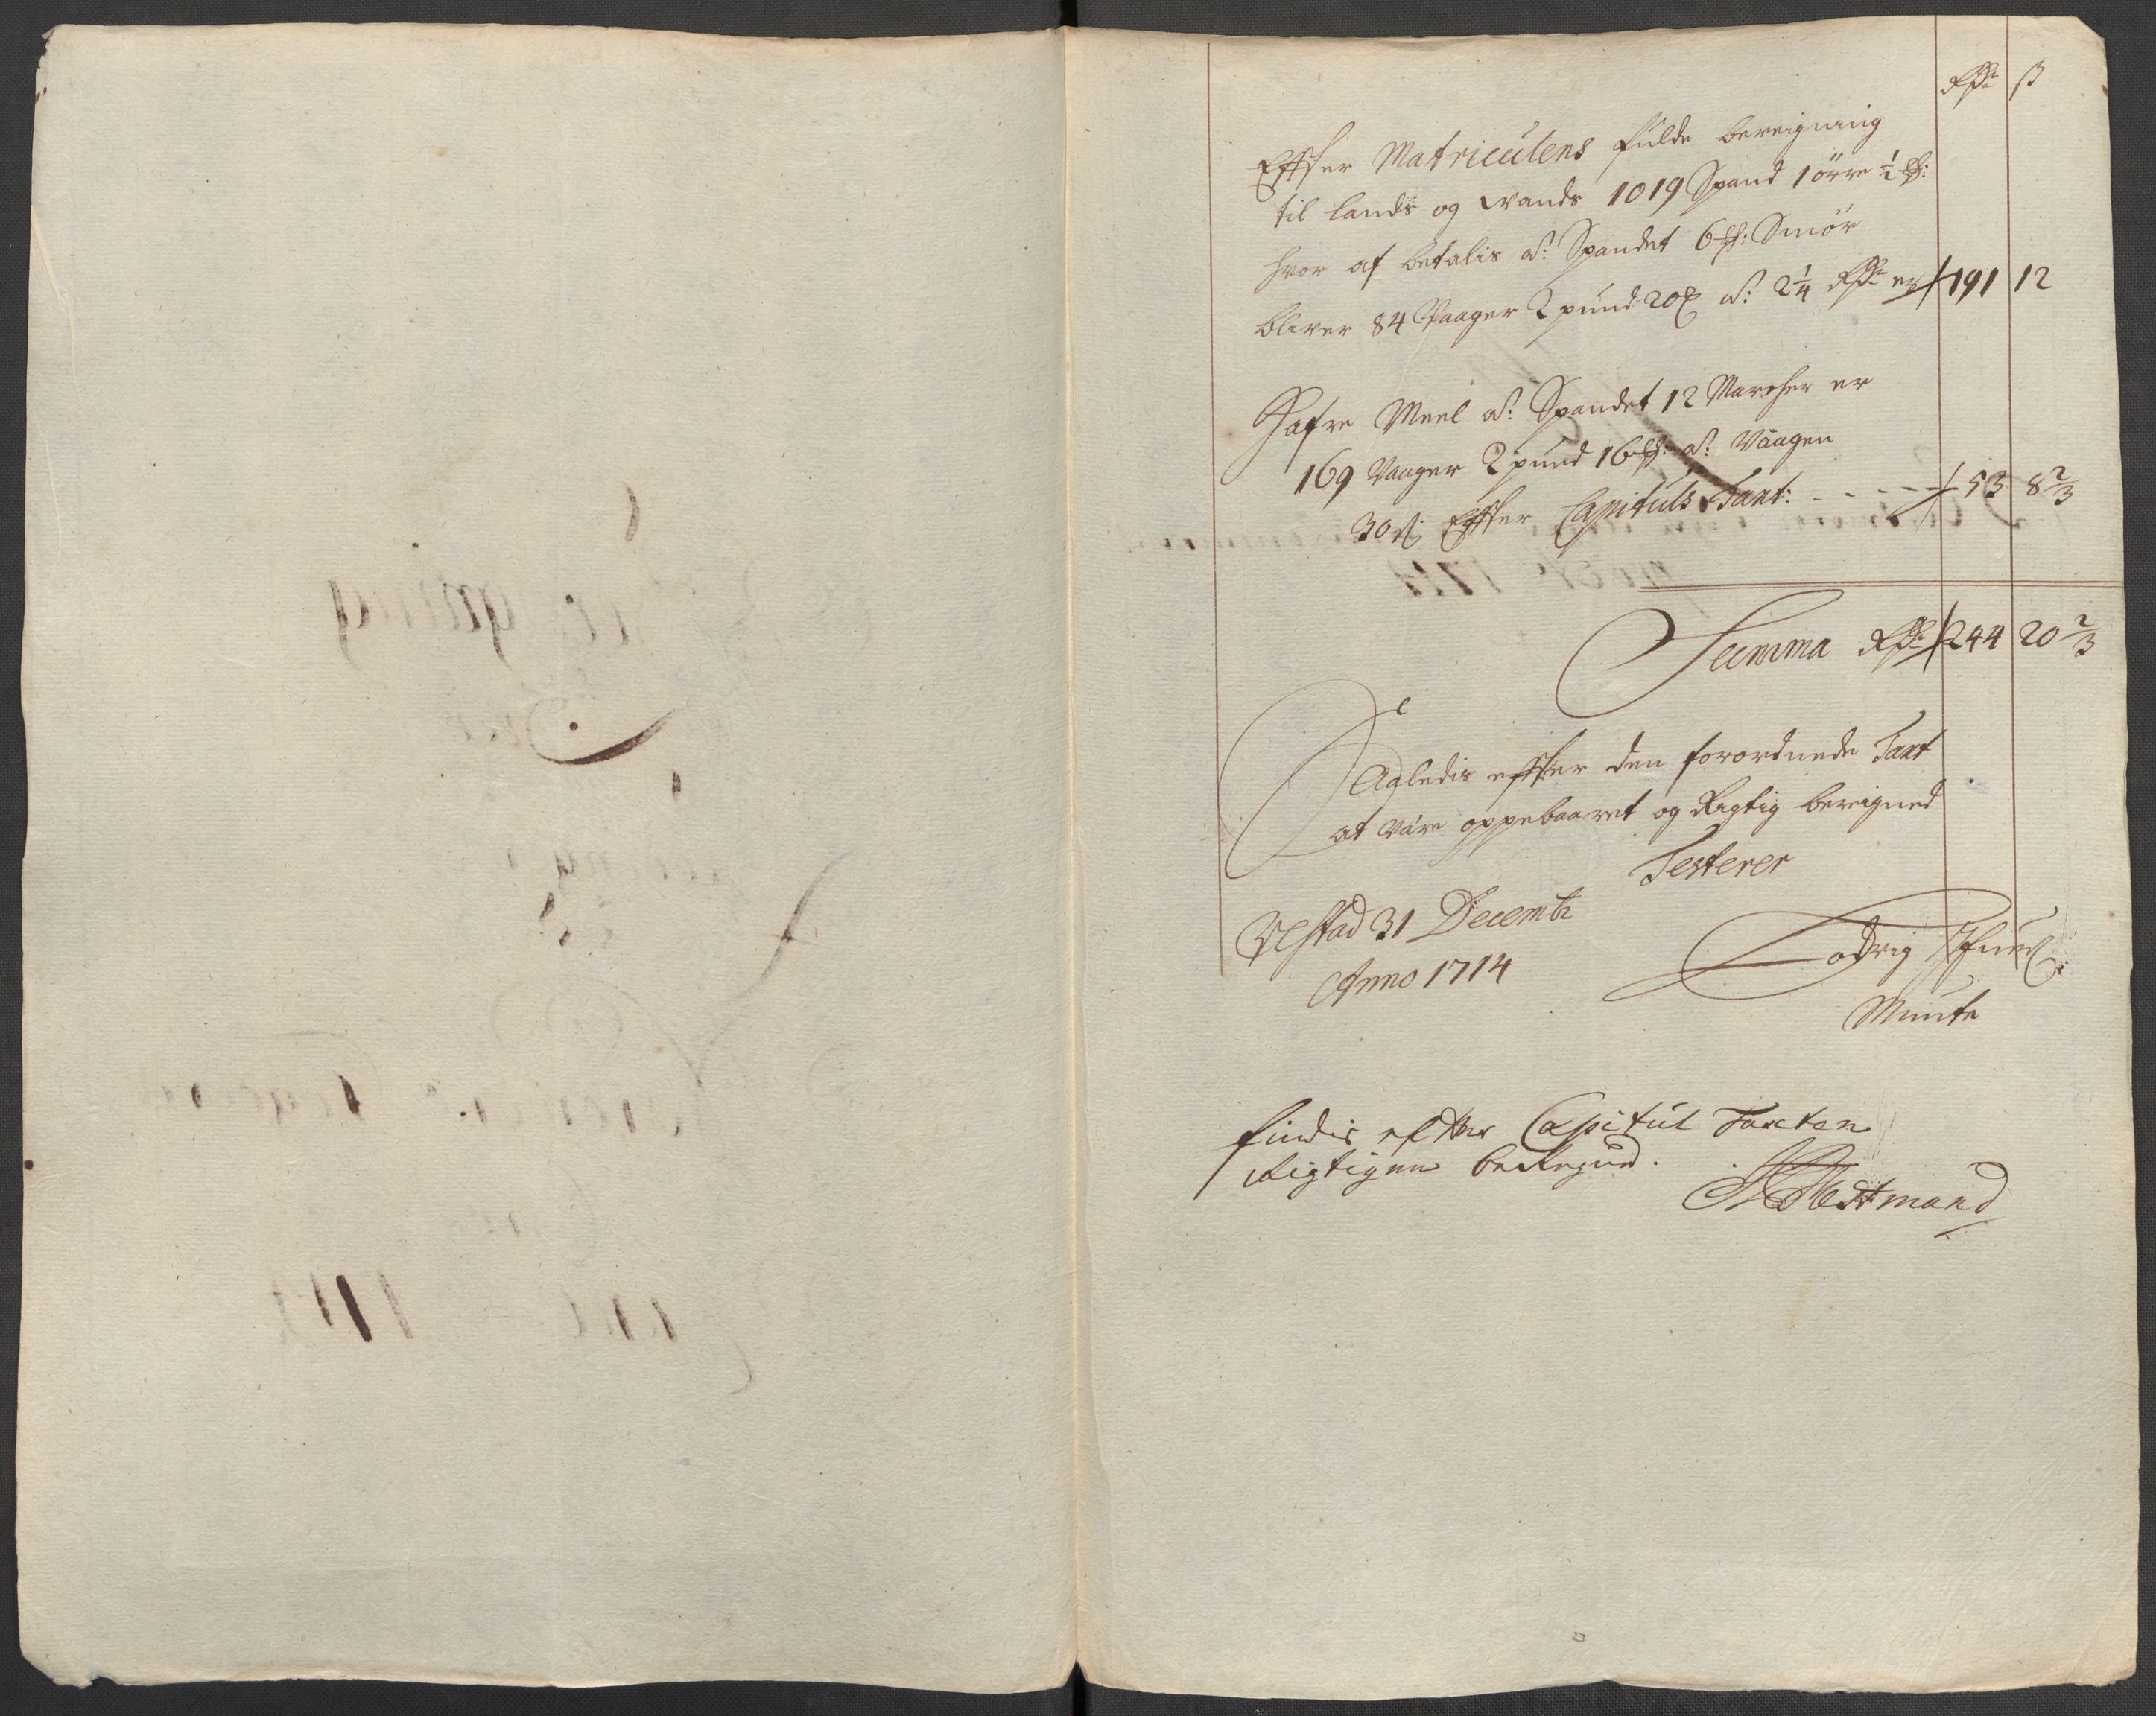 Rdr ß
Effter Matriculens fulde bereigning
til lands og wands 1019 Spand 1 örre ½ mk:
hvor af betalis a: Spandet 6 mk: Smör
bliver 84 Vaager 2 pund 20 a: 2¼ Rdr er 191 12
Hafre Meel a: Spandet 12 Marcher er
169 Vaager 2 pund 16 mk: a: Vaagen
30 s: Effter Capituls Taxt: - - - - - 53 8⅔
Summa Rdr 244 20⅔
Sagledis effter den forordnede Taxt
at være oppebaaret og Rigtig bereigned
Testerer
Vestad 31 Decembr
Anno 1714
Lodvig
Munte
findis effter Capitul Taxten
Rigtigen beregned.